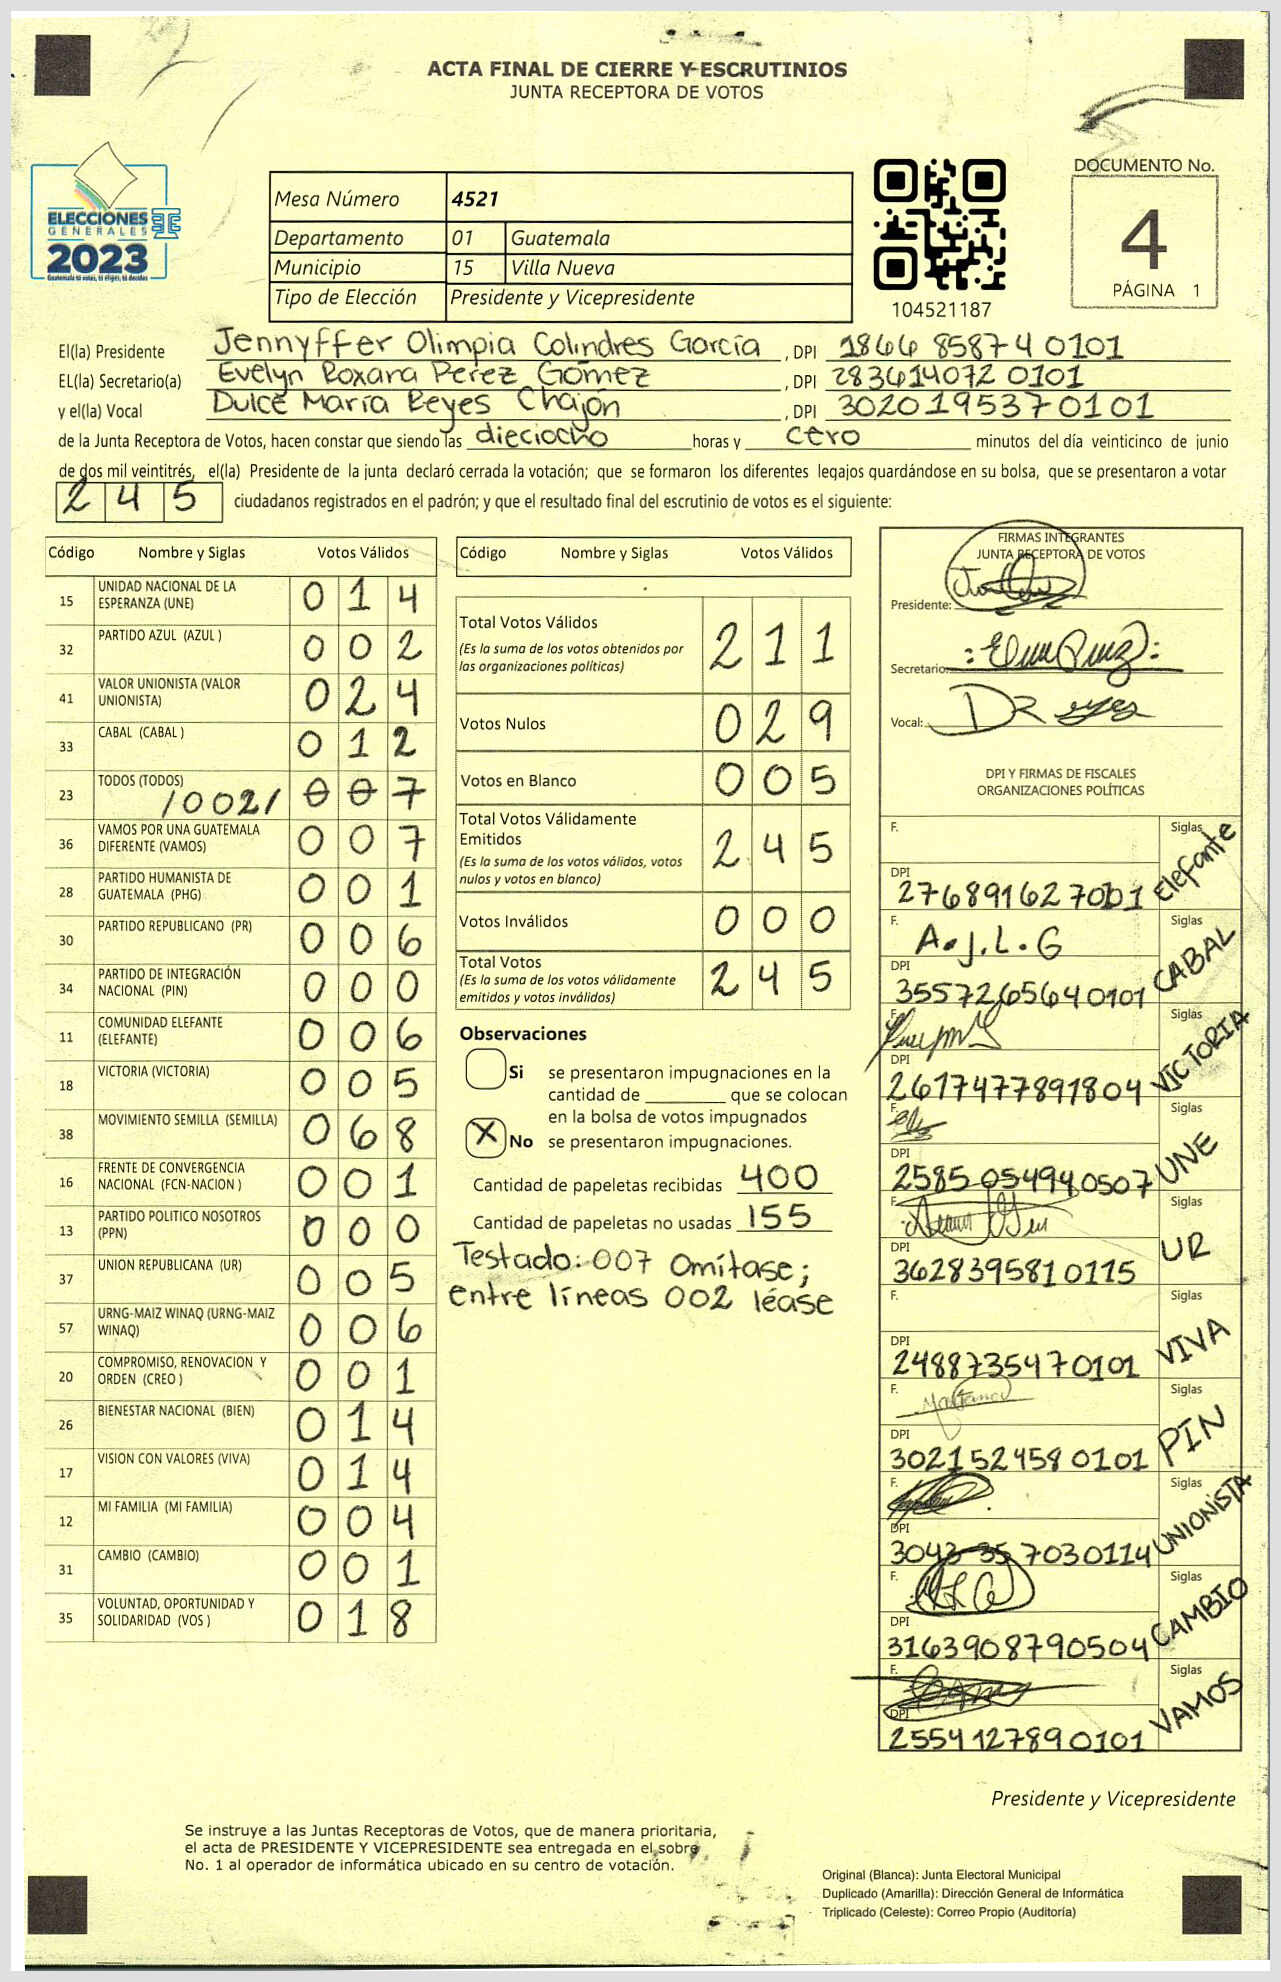 ACTA FINAL DE CIERRE Y ESCRUTINIOS
JUNTA RECEPTORA DE VOTOS
ELECCIONES
GENERALES
2023
Guatemala tú votas, tú eliges, tú decides
Mesa Número 4521
Departamento 01 Guatemala
Municipio 15 Villa Nueva
Tipo de Elección Presidente y Vicepresidente
104521187
DOCUMENTO No.
4
PÁGINA 1
El(la) Presidente Jennyffer Olimpia Colindres García , DPI 1866 85874 0101
EL(la) Secretario(a) Evelyn Roxana Perez Gómez , DPI 283614072 0101
y el(la) Vocal Dulce María Reyes Chajón , DPI 3020195370101
de la Junta Receptora de Votos, hacen constar que siendo las dieciocho horas y cero minutos del día veinticinco de junio
de dos mil veintitrés, el(la) Presidente de la junta declaró cerrada la votación; que se formaron los diferentes legajos guardándose en su bolsa, que se presentaron a votar
245 ciudadanos registrados en el padrón; y que el resultado final del escrutinio de votos es el siguiente:
Código Nombre y Siglas Votos Válidos
15 UNIDAD NACIONAL DE LA ESPERANZA (UNE) 014
32 PARTIDO AZUL (AZUL ) 002
41 VALOR UNIONISTA (VALOR UNIONISTA) 024
33 CABAL (CABAL ) 012
23 TODOS (TODOS) /002/ 007
36 VAMOS POR UNA GUATEMALA DIFERENTE (VAMOS) 007
28 PARTIDO HUMANISTA DE GUATEMALA (PHG) 001
30 PARTIDO REPUBLICANO (PR) 006
34 PARTIDO DE INTEGRACIÓN NACIONAL (PIN) 000
11 COMUNIDAD ELEFANTE (ELEFANTE) 006
18 VICTORIA (VICTORIA) 005
38 MOVIMIENTO SEMILLA (SEMILLA) 068
16 FRENTE DE CONVERGENCIA NACIONAL (FCN-NACION ) 001
13 PARTIDO POLITICO NOSOTROS (PPN) 000
37 UNION REPUBLICANA (UR) 005
57 URNG-MAIZ WINAQ (URNG-MAIZ WINAQ) 006
20 COMPROMISO, RENOVACION Y ORDEN (CREO ) 001
26 BIENESTAR NACIONAL (BIEN) 014
17 VISION CON VALORES (VIVA) 014
12 MI FAMILIA (MI FAMILIA) 004
31 CAMBIO (CAMBIO) 001
35 VOLUNTAD, OPORTUNIDAD Y SOLIDARIDAD (VOS ) 018
Código Nombre y Siglas Votos Válidos
Total Votos Válidos 211
(Es la suma de los votos obtenidos por
las organizaciones políticas)
Votos Nulos 029
Votos en Blanco 005
Total Votos Válidamente
Emitidos 245
(Es la suma de los votos válidos, votos
nulos y votos en blanco)
Votos Inválidos 000
Total Votos 245
(Es la suma de los votos válidamente
emitidos y votos inválidos)
Observaciones
Si se presentaron impugnaciones en la
cantidad de ________ que se colocan
en la bolsa de votos impugnados
X No se presentaron impugnaciones.
Cantidad de papeletas recibidas 400
Cantidad de papeletas no usadas 155
Testado: 007 Omítase;
entre líneas 002 léase
FIRMAS INTEGRANTES
JUNTA RECEPTORA DE VOTOS
Presidente:
Secretario:
Vocal: DReyes
DPI Y FIRMAS DE FISCALES
ORGANIZACIONES POLÍTICAS
F. Siglas Elefante
DPI
F. A.J.L.G Siglas CABAL
DPI 3557265640101
F. Siglas VICTORIA
DPI 2617477891804
F. Siglas UNE
DPI 2585 05494 0507
F. Siglas UR
DPI 3628395810115
F. Siglas VIVA
DPI 2488735470101
F. Siglas PIN
DPI 302152458 0101
F. Siglas UNIONISTA
DPI 3043 35 7030114
F. Siglas CAMBIO
DPI 3163908790504
F. Siglas VAMOS
DPI 2554127890101
Presidente y Vicepresidente
Se instruye a las Juntas Receptoras de Votos, que de manera prioritaria,
el acta de PRESIDENTE Y VICEPRESIDENTE sea entregada en el sobre
No. 1 al operador de informática ubicado en su centro de votación.
Original (Blanca): Junta Electoral Municipal
Duplicado (Amarilla): Dirección General de Informática
Triplicado (Celeste): Correo Propio (Auditoría)